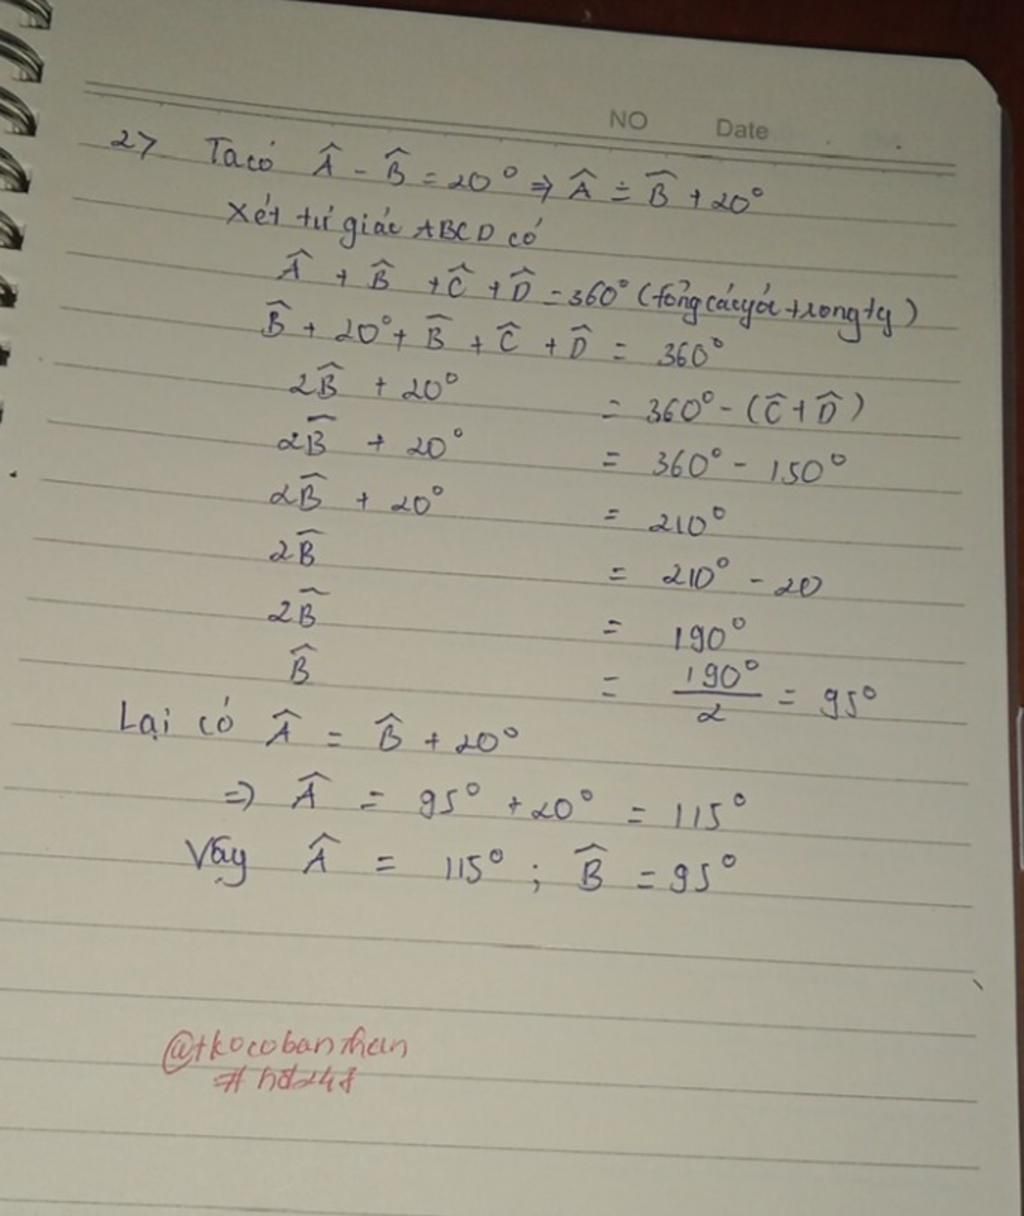 NO Date
27 Ta có Â - B̂ = 20° ⇒ Â = B̂ + 20°
Xét tứ giác ABCD có
Â + B̂ + Ĉ + D̂ = 360° (tổng các góc trong tg)
B̂ + 20° + B̂ + Ĉ + D̂ = 360°
2B̂ + 20° = 360° - (Ĉ + D̂)
2B̂ + 20° = 360° - 150°
2B̂ + 20° = 210°
2B̂ = 210° - 20
2B̂ = 190°
B̂ = 190°/2 = 95°
Lại có Â = B̂ + 20°
=> Â = 95° + 20° = 115°
Vậy Â = 115° ; B̂ = 95°